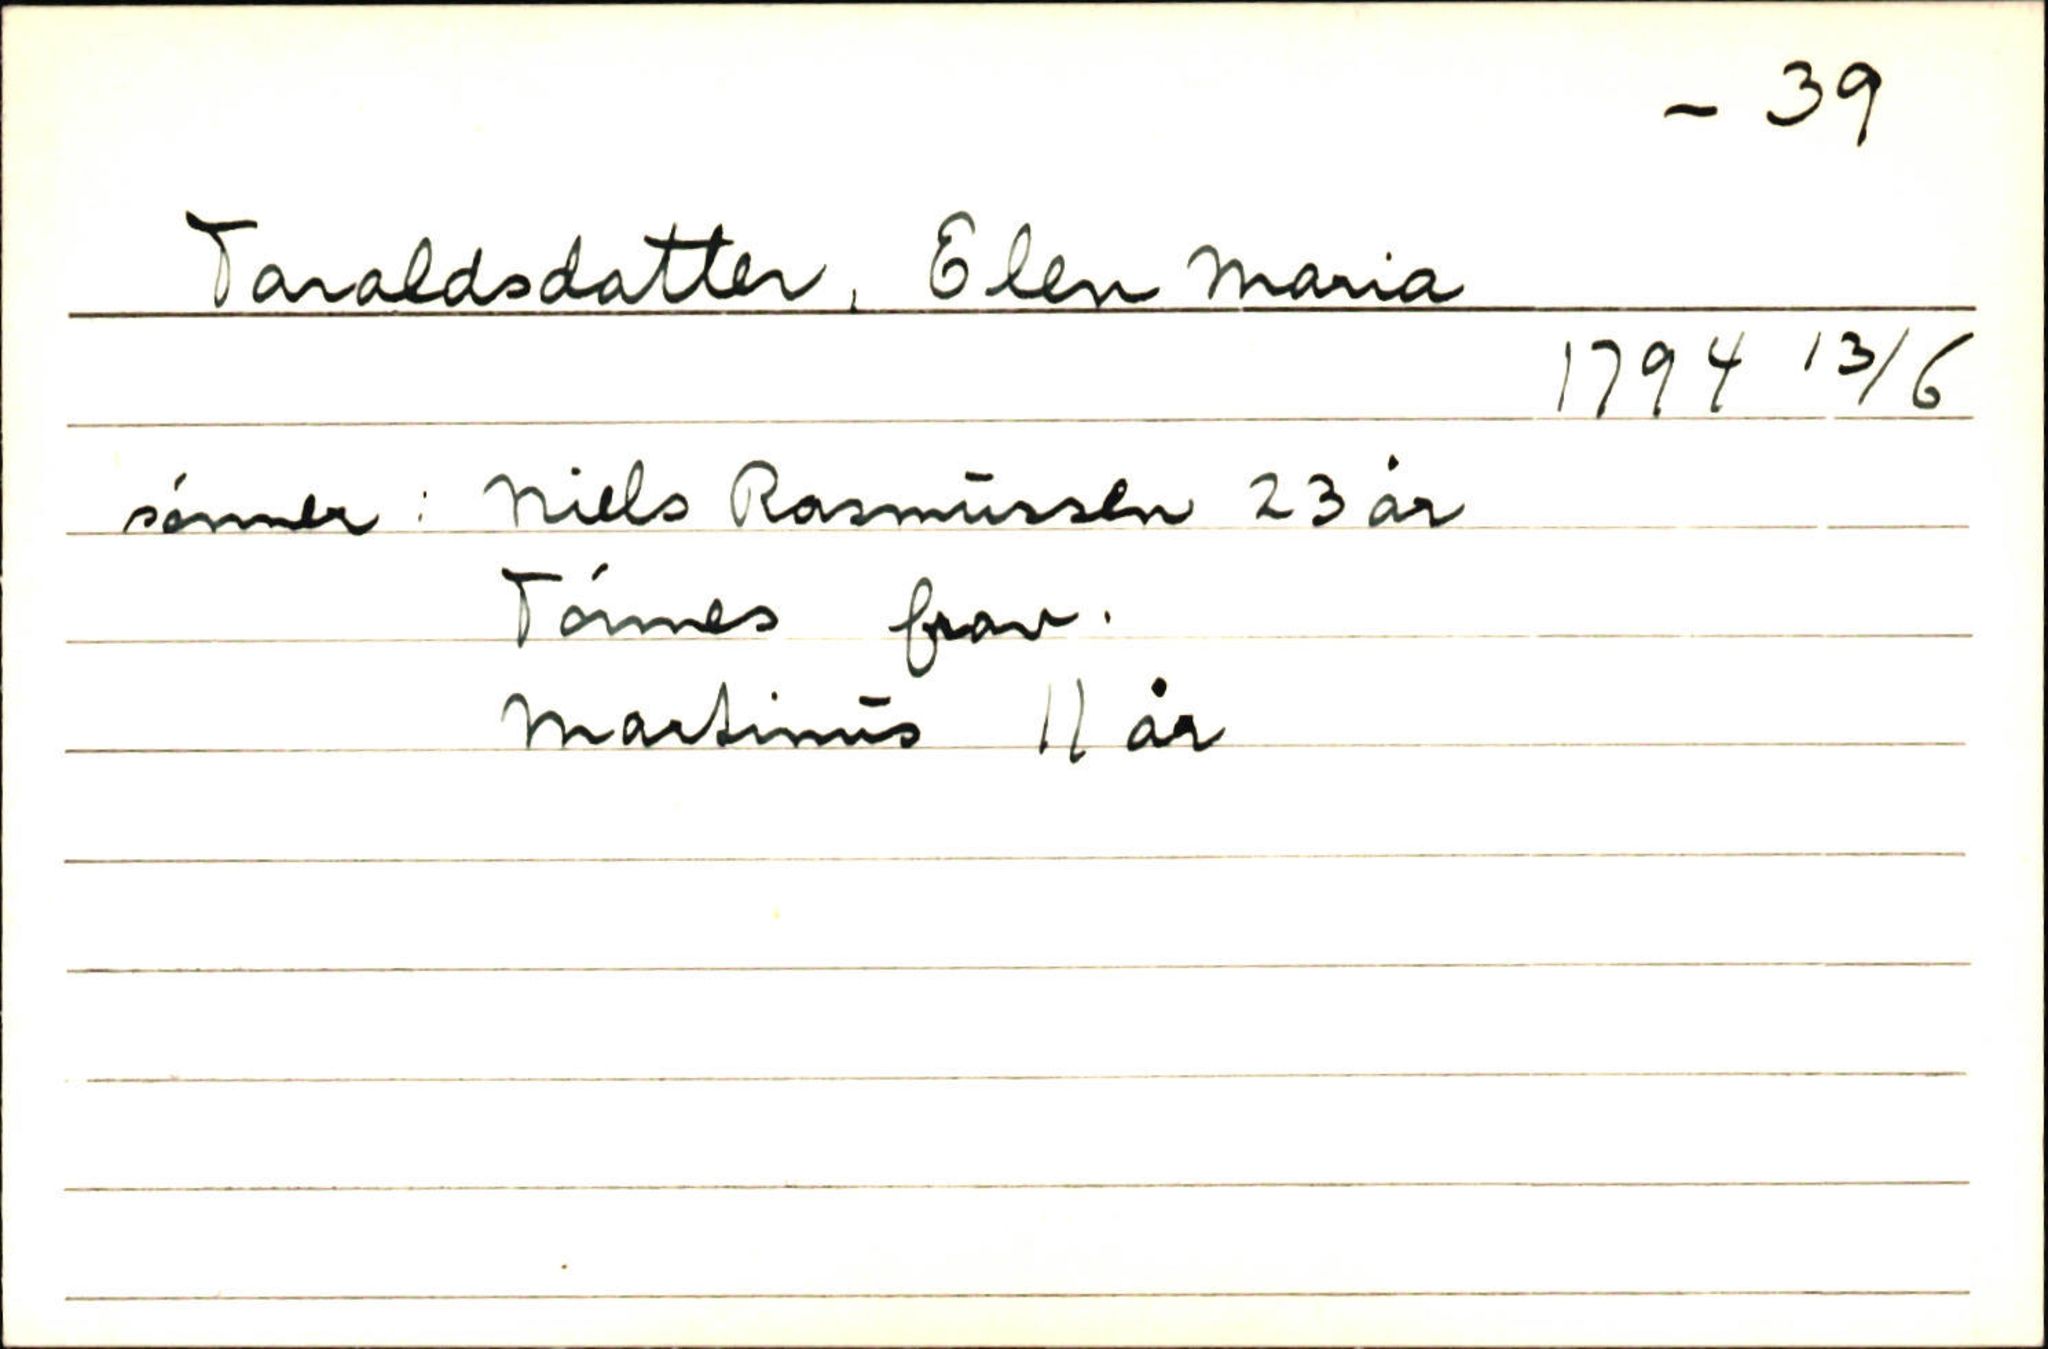 - 39
Taraldsdatter, Elen Maria
1794 13/6
sónner : Niels Rasmūssen 23 år
Tónnes frav.
Martinūs 11 år